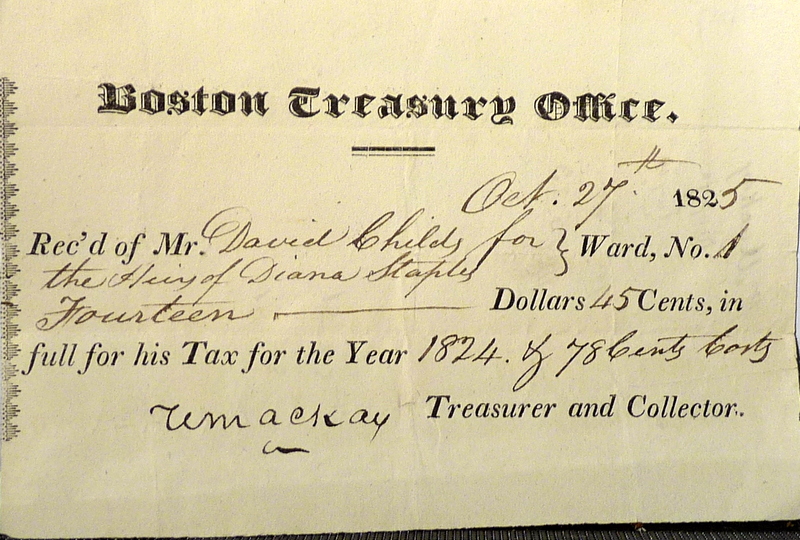 Boston Treasury Office.
Oct. 27th 1825
Rec'd of Mr. David Childs for } Ward, No. 1
the Heirs of Diana Staples
Fourteen — Dollars 45 Cents, in
full for his Tax for the Year 1824. & 78 Cents Costs
Wm Mackay Treasurer and Collector.